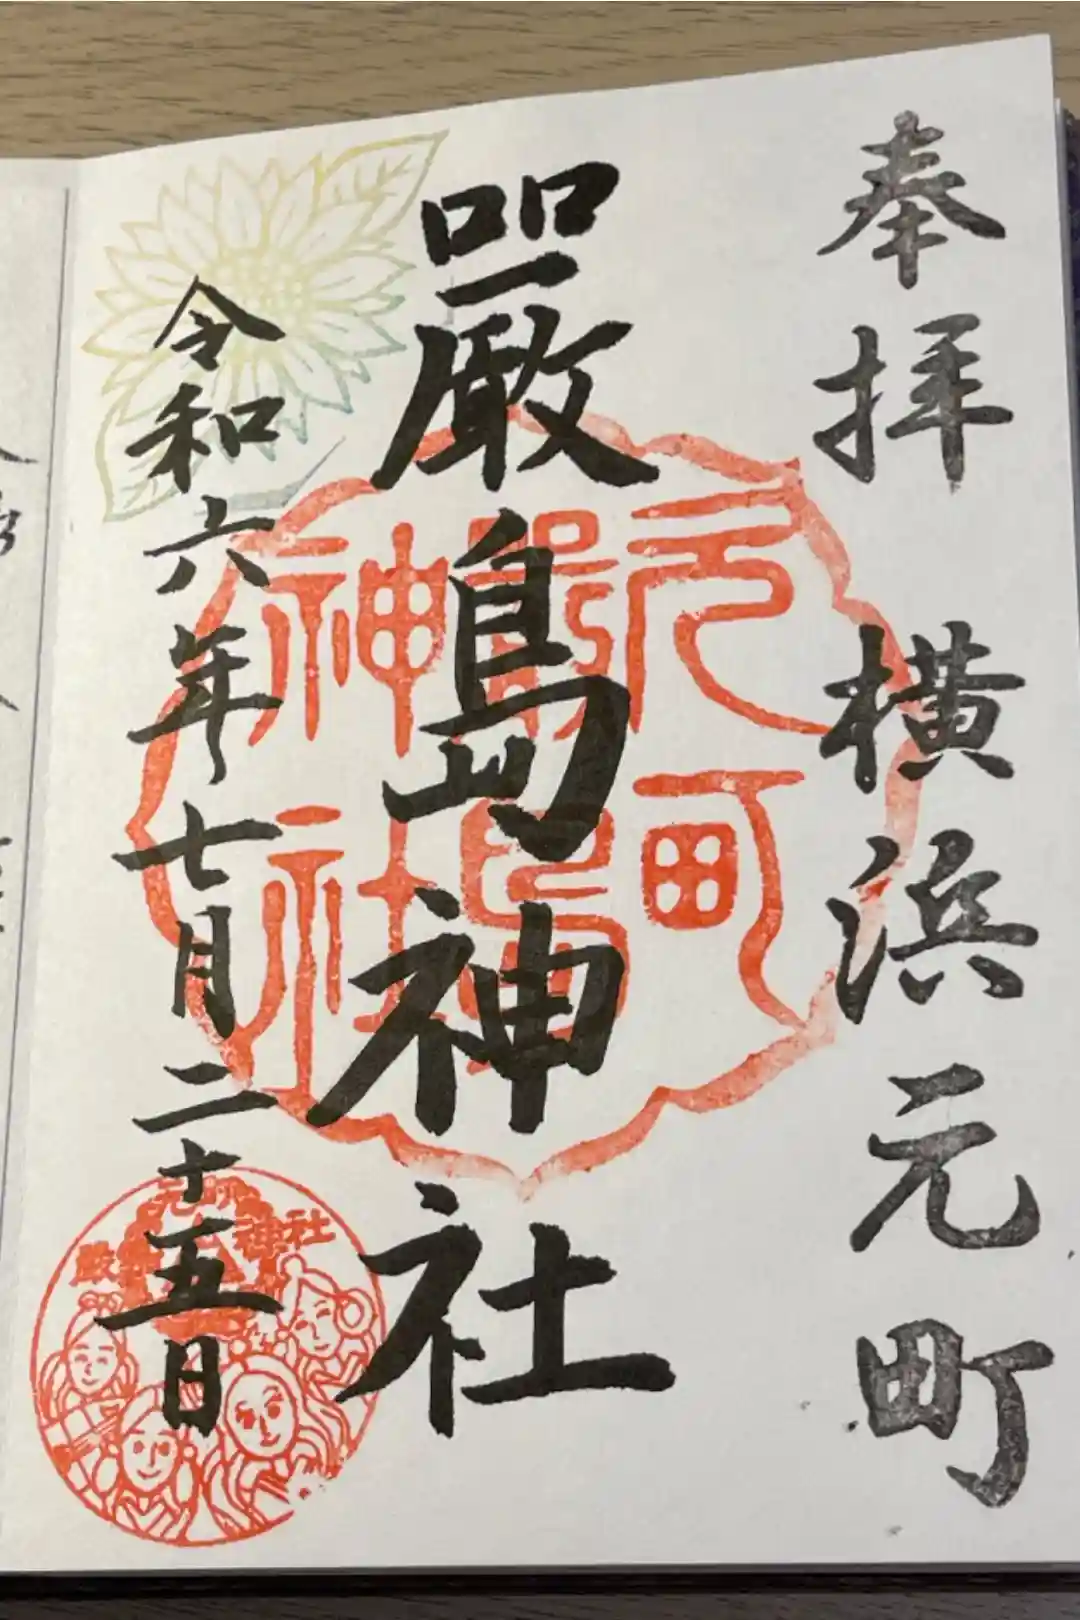 奉拝 横浜元町
嚴島神社
令和六年七月二十五日
元町
嚴島
神社
元町
嚴島神社